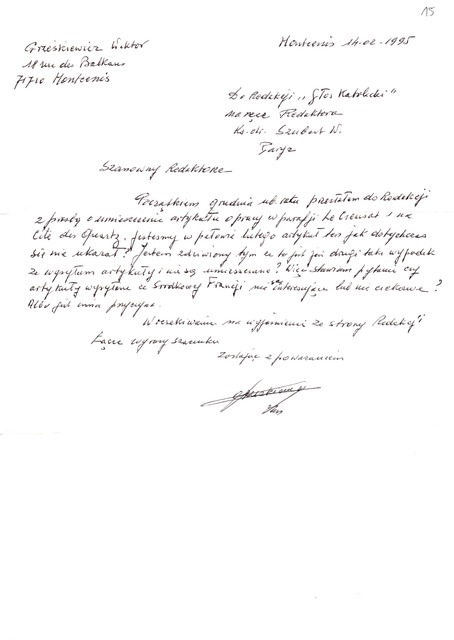 15
Grześkiewicz Wiktor
18 rue des Balkans
71710 Montcenis
Montcenis 14-02-1995
Do Redakcji "Głos Katolicki"
na ręce Redaktora
Ks. dr. Szubert W.
Paryż
Szanowny Redaktorze
Początkiem grudnia ub. roku przesłałem do Redakcji
z prośbą o umieszczenie artykułu o pracy w parafji Le Creusot i na
Cite des Quartz. Jesteśmy w połowie lutego artykuł ten jak dotychczas
się nie ukazał? Jestem zdziwiony tym że to już jest drugi taki wypadek
że wysyłam artykuły i nie są umieszczane? Więc stawiam pytanie czy
artykuły wysyłane ze Środkowej Francji nie są interesujące lub nie ciekawe?
Albo jest inna przyczyna.
W oczekiwaniu na wyjaśnienie ze strony Redakcji
Łączę wyrazy szacunku
Zostając z poważaniem